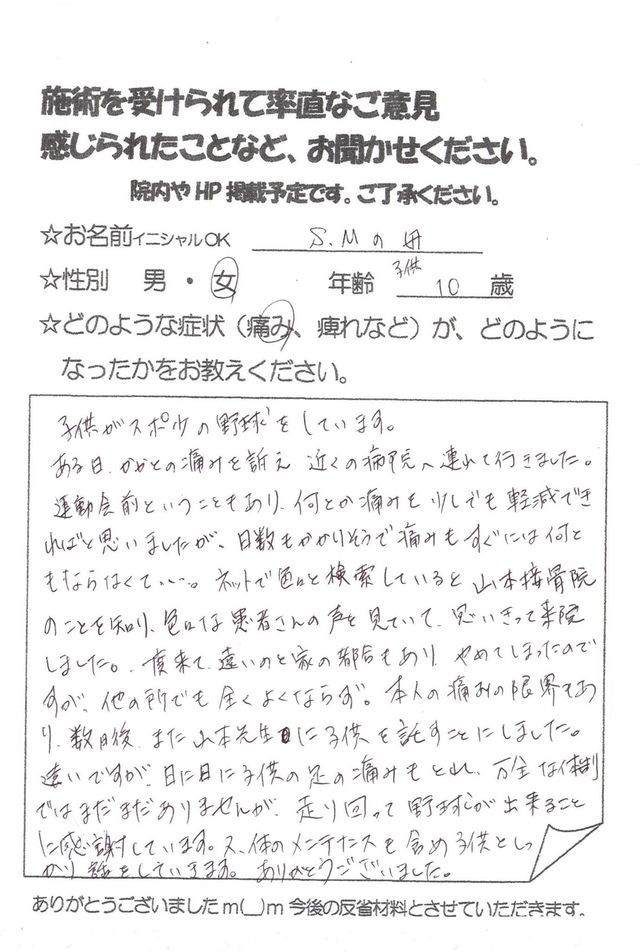 施術を受けられて率直なご意見
感じられたことなど、お聞かせください。
院内やHP掲載予定です。ご了承ください。
☆お名前イニシャルOK S.Mの母
☆性別 男・女 年齢 子供 10 歳
☆どのような症状（痛み、痺れなど）が、どのように
なったかをお教えください。
子供がスポーツの野球をしています。
ある日、かかとの痛みを訴え 近くの病院へ連れて行きました。
運動会前ということもあり、何とか痛みを少しでも軽減でき
ればと思いましたが、日数もかかりそうで痛みもすぐには何と
もならなくて・・・。ネットで色々と検索していると 山本接骨院
のことを知り、色々な患者さんの声を見ていて、思いきって来院
しました。一度来て、遠いのと家の都合もあり やめてしまったので
すが、他の所でも全くよくならず。本人の痛みの限界もあ
り、数日後、また山本先生に子供を託すことにしました。
遠いですが、日に日に子供の足の痛みもとれ、万全な体制
ではまだまだありませんが、走り回って野球が出来ること
に感謝しています。又、体のメンテナンスも含め子供としっ
かり話をしていきます。ありがとうございました。
ありがとうございましたm(__)m今後の反省材料とさせていただきます。